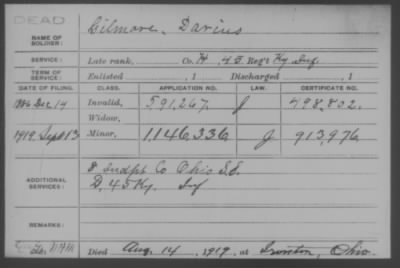 DEAD
NAME OF SOLDIER: Gilmore, Darius
SERVICE: Late rank, Co. H, 45 Reg't Ky Inf.
TERM OF SERVICE: Enlisted , 1 Discharged , 1
DATE OF FILING. CLASS. APPLICATION NO. LAW. CERTIFICATE NO.
1886 Dec 14 Invalid, 591,267. J 498,802.
Widow,
1919. Sept 13 Minor, 1,146,336 J 913,976
ADDITIONAL SERVICES: 8 Indpt Co Ohio S.S.
D, 45 Ky. Inf
REMARKS:
Died Aug. 14, 1919, at Ironton, Ohio.